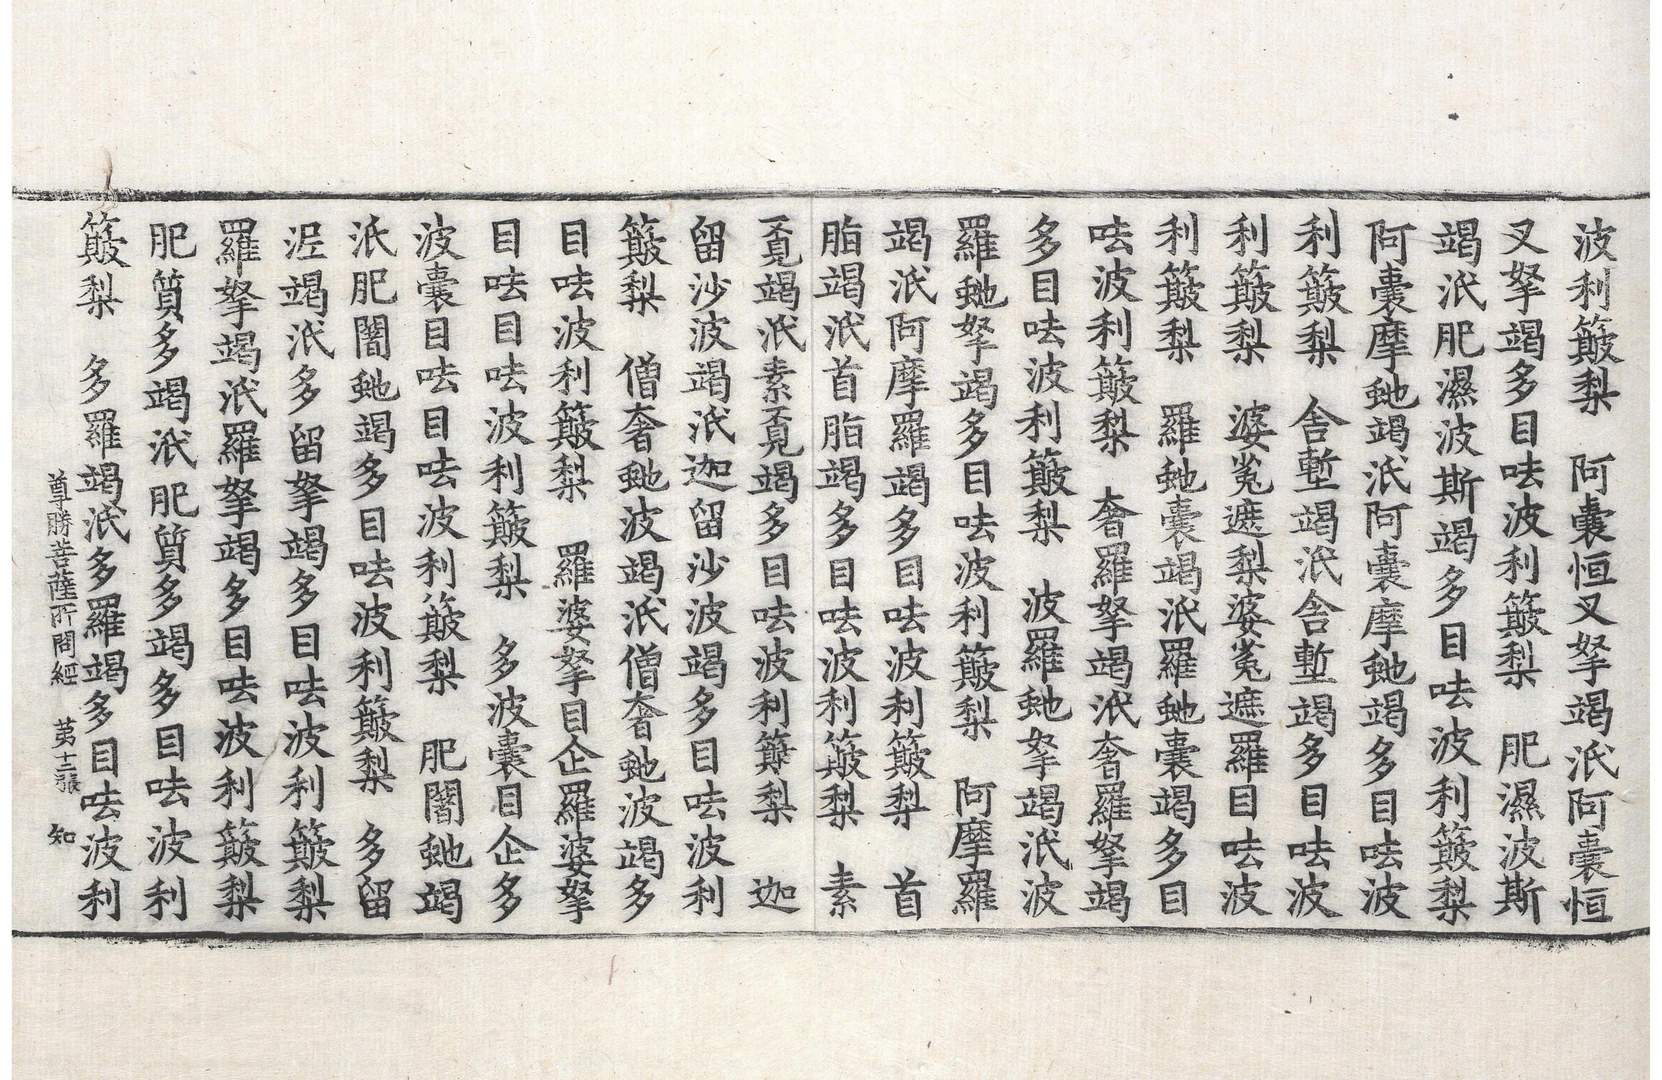 波利簸梨　阿囊恒叉拏竭泜阿囊恒
叉拏竭多目呿波利簸梨　肥濕波斯
竭泜肥濕波斯竭多目呿波利簸梨
阿囊摩虵竭泜阿囊摩虵竭多目呿波
利簸梨　舍塹竭泜舍塹竭多目呿波
利簸梨　婆㝹遮梨婆㝹遮羅目呿波
利簸梨　羅虵囊竭泜羅虵囊竭多目
呿波利簸梨　奢羅拏竭泜奢羅拏竭
多目呿波利簸梨　波羅虵拏竭泜波
羅虵拏竭多目呿波利簸梨　阿摩羅
竭泜阿摩羅竭多目呿波利簸梨　首
脂竭泜首脂竭多目呿波利簸梨　素
覔竭泜素覔竭多目呿波利簸梨　迦
留沙波竭泜迦留沙波竭多目呿波利
簸梨　僧奢虵波竭泜僧奢虵波竭多
目呿波利簸梨　羅婆拏目企羅婆拏
目呿目呿波利簸梨　多波囊目企多
波囊目呿目呿波利簸梨　肥闍虵竭
泜肥闍虵竭多目呿波利簸梨　多留
泥竭泜多留拏竭多目呿波利簸梨
羅拏竭泜羅拏竭多目呿波利簸梨
肥質多竭泜肥質多竭多目呿波利
簸梨　多羅竭泜多羅竭多目呿波利
尊勝菩薩所問經　苐十二張　知